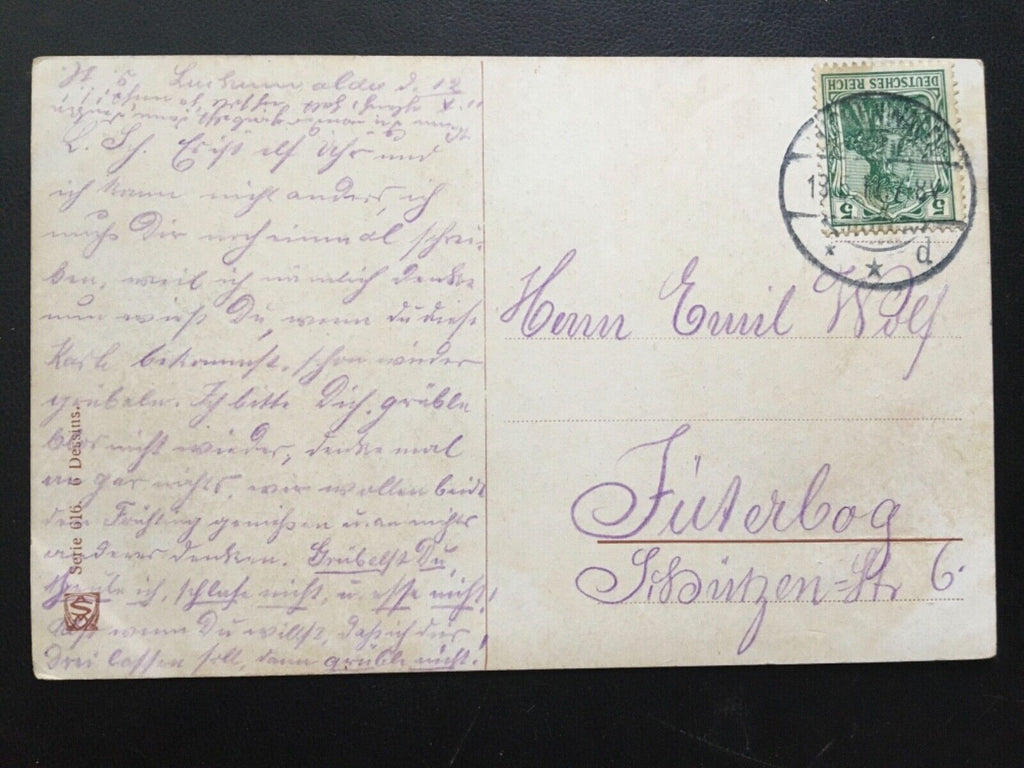 Luckenwalde d. 12
L. Sch. Es ist elf Uhr und
ich kann nicht anders, ich
muß Dir noch einmal schrei-
ben, weil ich nämlich denke
nun wirst Du, wenn du diese
Karte bekommst, schon wieder
grübeln. Ich bitte Dich, grüble
blos nicht wieder, denke mal
an gar nichts, wir wollen beide
den Frühling genießen u. an nichts
anderes denken. Grübelst Du,
grüble ich, schlafe nicht, u. esse nicht!
wenn Du willst, daß ich das
Drei lassen soll, dann grüble nicht!
Serie 616. 6 Dessins.
DEUTSCHES REICH
5 5
d
Herrn Emil Wolf
Jüterbog
Schützen-Str 6.